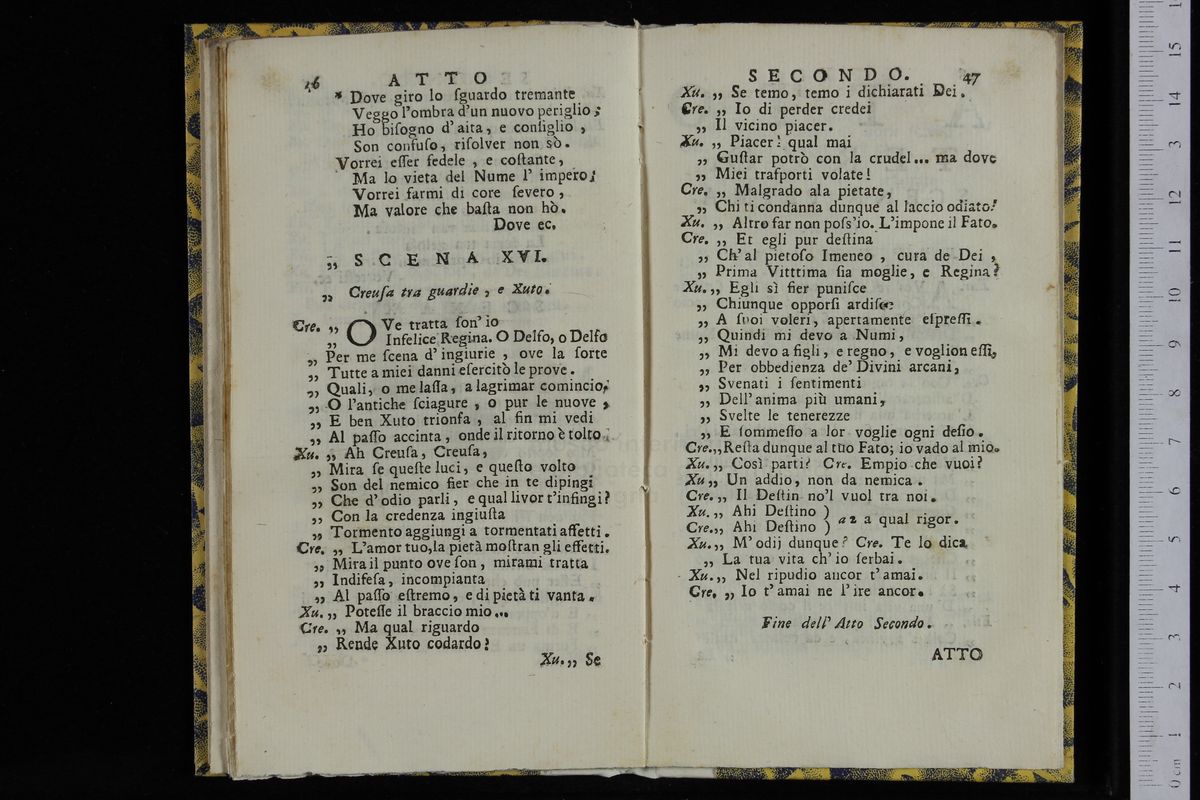 46 ATTO
* Dove giro lo ſguardo tremante
Veggo l'ombra d'un nuovo periglio;
Ho biſogno d'aita, e conſiglio,
Son confuſo, riſolver non sò.
Vorrei eſſer fedele, e coſtante,
Ma lo vieta del Nume l'impero;
Vorrei farmi di core ſevero,
Ma valore che baſta non hò.
Dove ec.
„ SCENA XVI.
„ Creuſa tra guardie, e Xuto.
Cre. „ OVe tratta ſon' io
„ Infelice Regina. O Delfo, o Delfo
„ Per me ſcena d'ingiurie, ove la ſorte
„ Tutte a miei danni eſercitò le prove.
„ Quali, o me laſſa, a lagrimar comincio,
„ O l'antiche ſciagure, o pur le nuove,
„ E ben Xuto trionfa, al fin mi vedi
„ Al paſſo accinta, onde il ritorno è tolto.
Xu. „ Ah Creuſa, Creuſa,
„ Mira ſe queſte luci, e queſto volto
„ Son del nemico fier che in te dipingi
„ Che d'odio parli, e qual livor t'infingi?
„ Con la credenza ingiuſta
„ Tormento aggiungi a tormentati affetti.
Cre. „ L'amor tuo, la pietà moſtran gli effetti.
„ Mira il punto ove ſon, mirami tratta
„ Indifeſa, incompianta
„ Al paſſo eſtremo, e di pietà ti vanta.
Xu. „ Poteſſe il braccio mio...
Cre. „ Ma qual riguardo
„ Rende Xuto codardo?
Xu. „ Se
SECONDO. 47
Xu. „ Se temo, temo i dichiarati Dei.
Cre. „ Io di perder credei
„ Il vicino piacer.
Xu. „ Piacer! qual mai
„ Guſtar potrò con la crudel... ma dove
„ Miei traſporti volate!
Cre. „ Malgrado ala pietate,
„ Chi ti condanna dunque al laccio odiato?
Xu. „ Altro far non poſs'io. L'impone il Fato.
Cre. „ Et egli pur deſtina
„ Ch'al pietoſo Imeneo, cura de' Dei,
„ Prima Vitttima ſia moglie, e Regina?
Xu. „ Egli sì fier puniſce
„ Chiunque opporſi ardiſce
„ A ſuoi voleri, apertamente eſpreſſi.
„ Quindi mi devo a Numi,
„ Mi devo a figli, e regno, e voglion eſſi,
„ Per obbedienza de' Divini arcani,
„ Svenati i ſentimenti
„ Dell'anima più umani,
„ Svelte le tenerezze
„ E ſommeſſo a lor voglie ogni deſio.
Cre. „ Reſta dunque al tuo Fato; io vado al mio.
Xu. „ Così parti? Cre. Empio che vuoi?
Xu „ Un addio, non da nemica.
Cre. „ Il Deſtin no'l vuol tra noi.
Xu. „ Ahi Deſtino )
Cre. „ Ahi Deſtino ) a 2 a qual rigor.
Xu. „ M'odij dunque? Cre. Te lo dica
„ La tua vita ch'io ſerbai.
Xu. „ Nel ripudio ancor t'amai.
Cre. „ Io t'amai ne l'ire ancor.
Fine dell'Atto Secondo.
ATTO